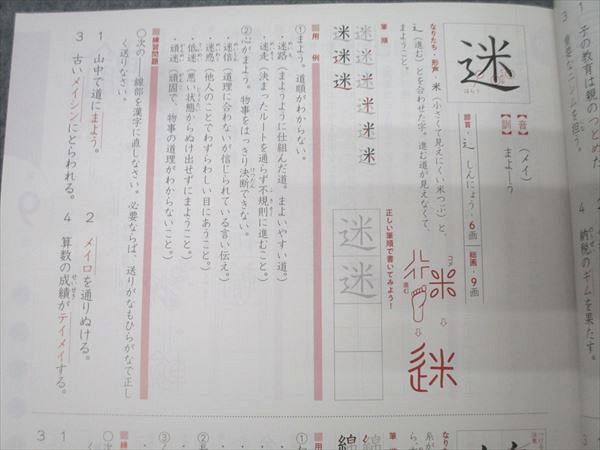 迷
はらう
【音】（メイ）
【訓】まよ－う
部首 辶 しんにょう・6画
総画・9画
なりたち・形声・米（小さくて見えにくい米つぶ）と、
辶（進む）とを合わせた字。進む道が見えなくて、
まようこと。
コメ
進む
筆順
米
迷
正しい筆順で書いてみよう！
迷迷
用例
①まよう。道順がわからない。
・迷路（まようように仕組んだ道。まよいやすい道。）
・迷走（決まったルートを通らず不規則に進むこと。）
②心がまよう。物事をはっきり決断できない。
・迷信（道理に合わないが信じられている言い伝え。）
・迷惑（他人のことでわずらわしい目にあうこと。）
・低迷（悪い状態からぬけ出せずにまようこと。）
・頑迷（頑固で、物事の道理がわからないこと。）
練習問題
○次の――線部を漢字に直しなさい。必要ならば、送りがなもひらがなで正し
く送りなさい。
1 山中で道にまよう。
2 メイロを通りぬける。
3 古いメイシンにとらわれる。
4 算数の成績がテイメイする。
せいせき
3 子の教育は親のつとめだ
1 重要なニンムを担う。
4 納税のギムを果たす。
綿綿